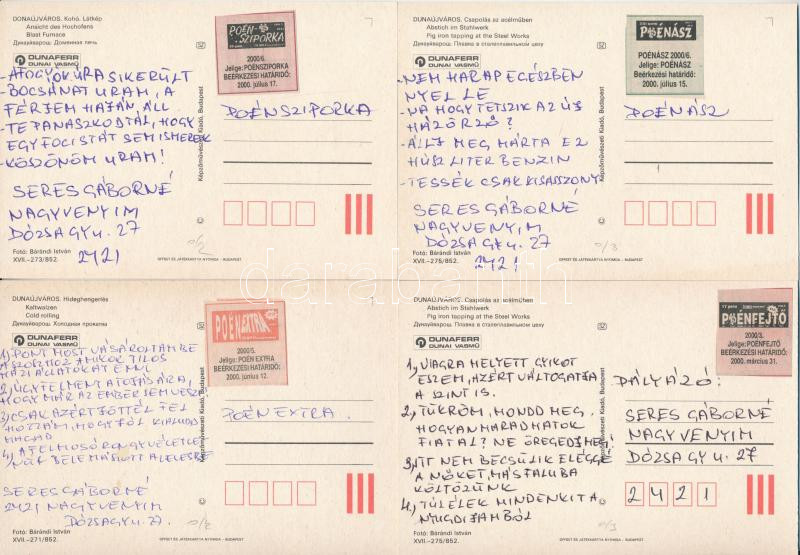 DUNAÚJVÁROS. Kohó. Látkép
Ansicht des Hochofens
Blast Furnace
Дунауйварош. Доменная печь
DUNAFERR
DUNAI VASMŰ
POÉN-
SZIPORKA
2000/6.
Jelige: POÉNSZIPORKA
BEÉRKEZÉSI HATÁRIDŐ:
2000. július 17.
SIKERÜLT
- BOCSÁNAT URAM, A
FÉRJEM HAJÁN, ÁLL
- TE PANASZKODTÁL, HOGY
EGY FOCISTÁT SEM ISMEREK
- KÖSZÖNÖM URAM!
SERES GÁBORNÉ
NAGYVENYIM
DÓZSA GY u. 27
2421
POÉNSZIPORKA
Képzőművészeti Kiadó, Budapest
Fotó: Bárándi István
XVII.-273/852.
OFFSET ÉS JÁTÉKKÁRTYA NYOMDA - BUDAPEST
DUNAÚJVÁROS. Csapolás az acélműben
Abstich im Stahlwerk
Pig iron tapping at the Steel Works
Дунауйварош. Плавка в сталеплавильном цеху
DUNAFERR
DUNAI VASMŰ
POÉNÁSZ
POÉNÁSZ 2000/6.
Jelige: POÉNÁSZ
BEÉRKEZÉSI HATÁRIDŐ:
2000. július 15.
- NEM HARAP EGÉSZBEN
NYEL LE
- NA HOGY TETSZIK AZ ÚJ
HÁZŐRZŐ?
- ÁLLJ MEG MÁRTA EZ
HÚSZ LITER BENZIN
- TESSÉK CSAK KISASSZONY
SERES GÁBORNÉ
NAGYVENYIM
DÓZSA GY u. 27
2421
POÉNÁSZ
Képzőművészeti Kiadó, Budapest
Fotó: Bárándi István
XVII.-275/852.
OFFSET ÉS JÁTÉKKÁRTYA NYOMDA - BUDAPEST
darabanth
DUNAÚJVÁROS. Hideghengerlés
Kaltwalzen
Cold rolling
Дунауйварош. Холодная прокатка
DUNAFERR
DUNAI VASMŰ
POÉN EXTRA
2000/5.
Jelige: POÉN EXTRA
BEÉRKEZÉSI HATÁRIDŐ:
2000. június 12.
1) PONT MOST VÁSÁROLTAM BE
AMIKOR TILOS
HÁZIÁLLATOKAT ENNI
HOGY MÁR AZ EMBER SEM VESZI
3) CSAK AZÉRT JÖTTÉL FEL
HOZZÁM, HOGY JÓL
MAGAD
4) A FELMOSÓRONGY VÉLETLE-
NÜL BELEMÁSZOTT A LEVESBE
SERES GÁBORNÉ
2421 NAGYVENYIM
DÓZSA GY u. 27.
POÉN EXTRA
Képzőművészeti Kiadó, Budapest
Fotó: Bárándi István
XVII.-271/852.
OFFSET ÉS JÁTÉKKÁRTYA NYOMDA - BUDAPEST
DUNAÚJVÁROS. Csapolás az acélműben
Abstich im Stahlwerk
Pig iron tapping at the Steel Works
Дунауйварош. Плавка в сталеплавильном цеху
DUNAFERR
DUNAI VASMŰ
POÉNFEJTŐ
2000/3.
Jelige: POÉNFEJTŐ
BEÉRKEZÉSI HATÁRIDŐ:
2000. március 31.
1, VIAGRA HELYETT GYÍKOT
ESZEM, AZÉRT VÁLTOGATJA
A SZINT IS.
2, TÜKRÖM, MONDD MEG,
HOGYAN MARADHATOK
FIATAL? NE ÖREGEDJ MEG!
3, ITT NEM BECSÜLIK ELÉGGÉ
A NŐKET, MÁS FALUBA
KÖLTÖZÜNK
4, TÚLÉLEK MINDENKIT A
NYUGDÍJAMBÓL
PÁLYÁZÓ:
SERES GÁBORNÉ
NAGYVENYIM
DÓZSA GY u. 27
2421
Képzőművészeti Kiadó, Budapest
Fotó: Bárándi István
XVII.-275/852.
OFFSET ÉS JÁTÉKKÁRTYA NYOMDA - BUDAPEST